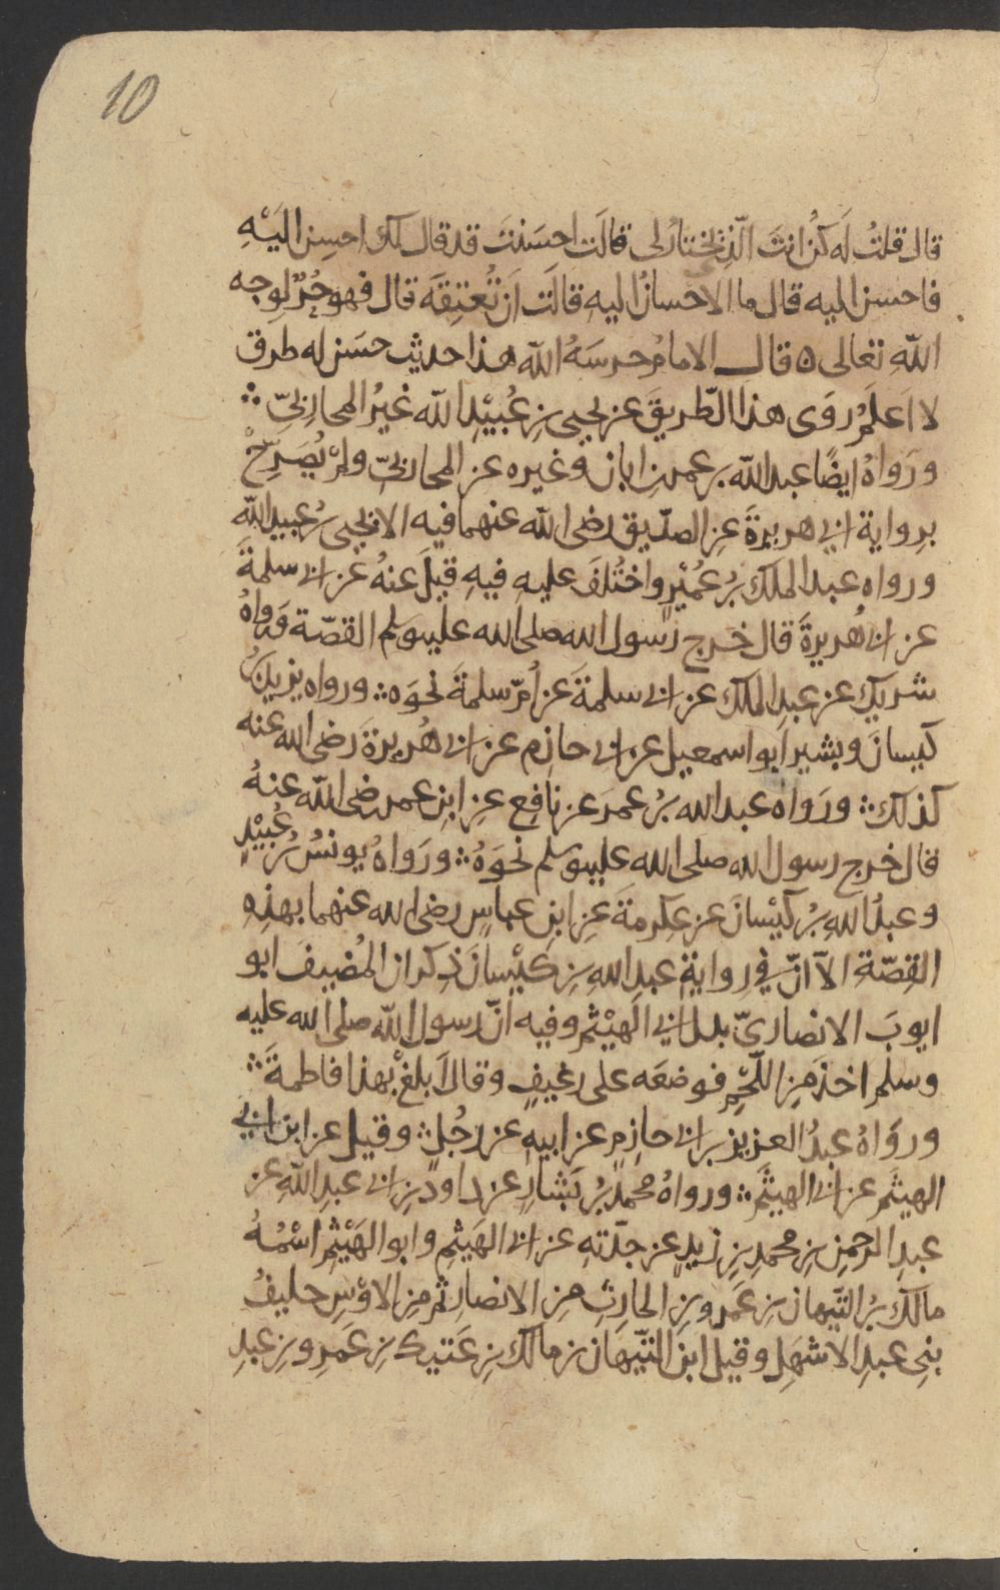 10
قال قلتُ لَه كُن انتَ الّذي تختارُ لي قالَت احسَنتَ قد قال لك احسِن اليَهِ
فاحسن اليه قال ما الاحسانُ اليهِ قالَت اَن تُعتِقَه قال فهو حُرٌّ لوجه
اللهِ تعالى ٥ قال الامامُ حرسَهُ الله هذا حديث حسَن له طرق
لا اَعلَمُ روَى هذا الطّريقَ عن يحيى بنِ عُبيْدِ الله غيرُ المحاربيّ ∴
ورَواهُ ايضًا عبد الله بن عمر بن ابان وغيره عن المحاربيّ ولم يُصَرِّحْ
برواية ابي هريرةَ عن الصدّيق رضى الله عنهما فيه الا يحيى بن عبيد الله
ورواه عبد الملك بنُ عُمَيْرٍ واختُلفَ عليهِ فيهِ قيلَ عنهُ عن ابي سلمةَ
عن ابي هُريرةَ قال خرج رسول الله صلى الله عليه وسلم القصّة ورواهُ
شريك عن عبد الملك عن ابي سلمةَ عن اُمّ سلمةَ نحوَه ∴ ورواه يزيد بنُ
كيسانَ وبشير ابو اسمعيل عن ابي حازم عن ابي هُريرةَ رضى الله عنه
كذلك ∴ ورَواه عبد الله بنُ عمرَ عن نافِع عنِ ابنِ عمر رضى الله عنهُ
قال خرج رسول الله صلى الله عليه وسلم نحوَهُ ∴ ورَواهُ يونسُ بنُ عُبيْدٍ
وعبدُ اللهِ بنُ كيْسانَ عن عِكرمةَ عنِ ابنِ عباسٍ رضى الله عنهما بهذِهِ
القِصّةِ الّا انّ في روايةِ عبدِ اللهِ بنِ كيْسانَ ذِكرَ ان المُضيفَ ابو
ايوبَ الانصاريّ بدل ابي الهيْثمِ وفيه انّ رسول الله صلى الله عليه
وسلم اخذَ مِن اللّحْمِ فوضعَه على رغيفٍ وقالَ اَبلغْ بهذا فاطمةَ ∴
وروَاهُ عبدُ العزيز بن ابي حازمٍ عن ابيهِ عن رجُلٍ ∴ وقيل عن ابن ابي
الهيثَمِ عن ابي الهيثَمِ ∴ ورواهُ محمدُ بنُ بَشّارٍ عن داودَ بنِ ابي عبدِ اللهِ عن
عبدِ الرحمنِ بنِ محمدِ بنِ زيدٍ عن جدّتهِ عن ابي الهَيثِمِ وابو الهَيْثِم اسْمُهُ
مالك بنُ التّيهان بنِ عَمرو بنِ الحارثِ مِن الانصارِ ثم مِن الاوْسِ حليفُ
بنِي عبدِ الاشهَلِ وقيل ابن التّيهَان بن مالك بنِ عَتيك بنِ عَمرِو بنِ عبدِ